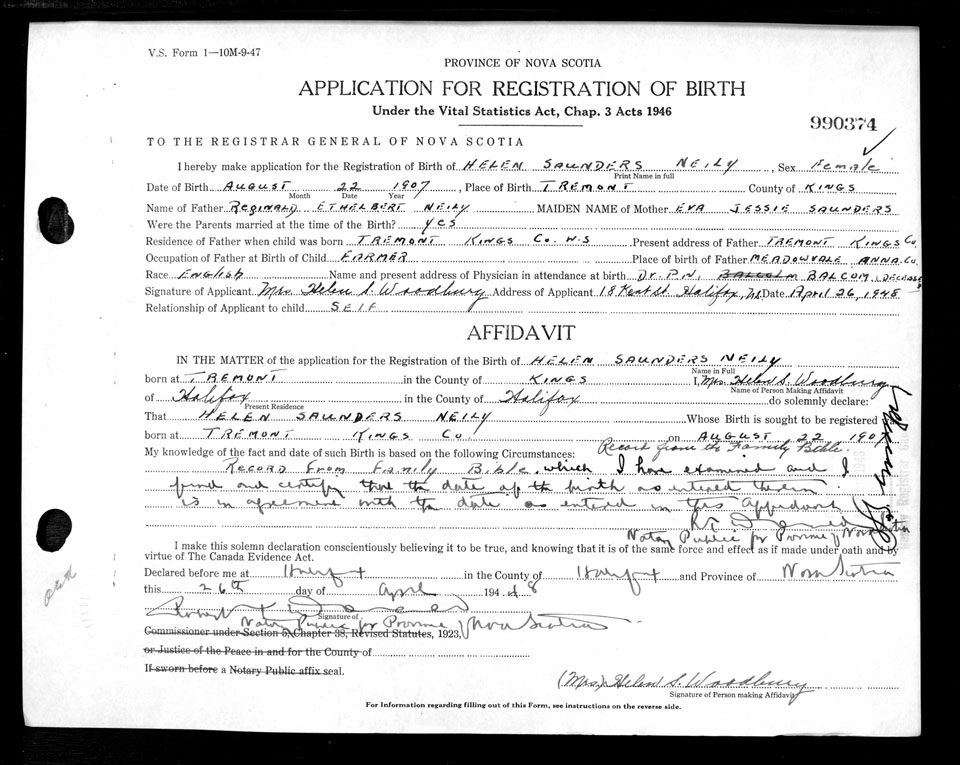 V.S. Form 1—10M-9-47
PROVINCE OF NOVA SCOTIA
APPLICATION FOR REGISTRATION OF BIRTH
Under the Vital Statistics Act, Chap. 3 Acts 1946
990374
TO THE REGISTRAR GENERAL OF NOVA SCOTIA
I hereby make application for the Registration of Birth of HELEN SAUNDERS NEILY, Sex Female
Print Name in full
Date of Birth AUGUST 22 1907, Place of Birth TREMONT County of KINGS
Month Date Year
Name of Father Reginald ETHELBERT NEILY MAIDEN NAME of Mother EVA JESSIE SAUNDERS
Were the Parents married at the time of the Birth? YES
Residence of Father when child was born TREMONT KINGS Co. N.S Present address of Father TREMONT KINGS Co.
Occupation of Father at Birth of Child FARMER Place of birth of Father MEADOWVALE ANNA. Co.
Race English Name and present address of Physician in attendance at birth Dr. P.N. BALCOM
Signature of Applicant Mrs Helen S. Woodbury Address of Applicant 18 Kent St. Halifax, N.S. Date April 26, 1948
Relationship of Applicant to child SELF
AFFIDAVIT
IN THE MATTER of the application for the Registration of the Birth of HELEN SAUNDERS NEILY
Name in Full
born at TREMONT in the County of KINGS I, Mrs. Helen S. Woodbury
Name of Person Making Affidavit
of Halifax in the County of Halifax do solemnly declare:
Present Residence
That HELEN SAUNDERS NEILY Whose Birth is sought to be registered was
born at TREMONT KINGS Co. on AUGUST 22 1907
My knowledge of the fact and date of such Birth is based on the following Circumstances: Record from the Family Bible.
RECORD FROM Family Bible. which I have examined and I
find and certify that the date of the birth as entered therein
is in agreement with the date as entered in this Affidavit
Notary Public for Province of Nova Scotia
I make this solemn declaration conscientiously believing it to be true, and knowing that it is of the same force and effect as if made under oath and by
virtue of The Canada Evidence Act.
Declared before me at Halifax in the County of Halifax and Province of Nova Scotia
this 26th day of April 1948
Robert
Signature of
Notary Public for Province of Nova Scotia
Commissioner under Section 5, Chapter 38, Revised Statutes, 1923,
or Justice of the Peace in and for the County of
If sworn before a Notary Public affix seal.
(Mrs.) Helen S. Woodbury
Signature of Person making Affidavit
For Information regarding filling out of this Form, see instructions on the reverse side.